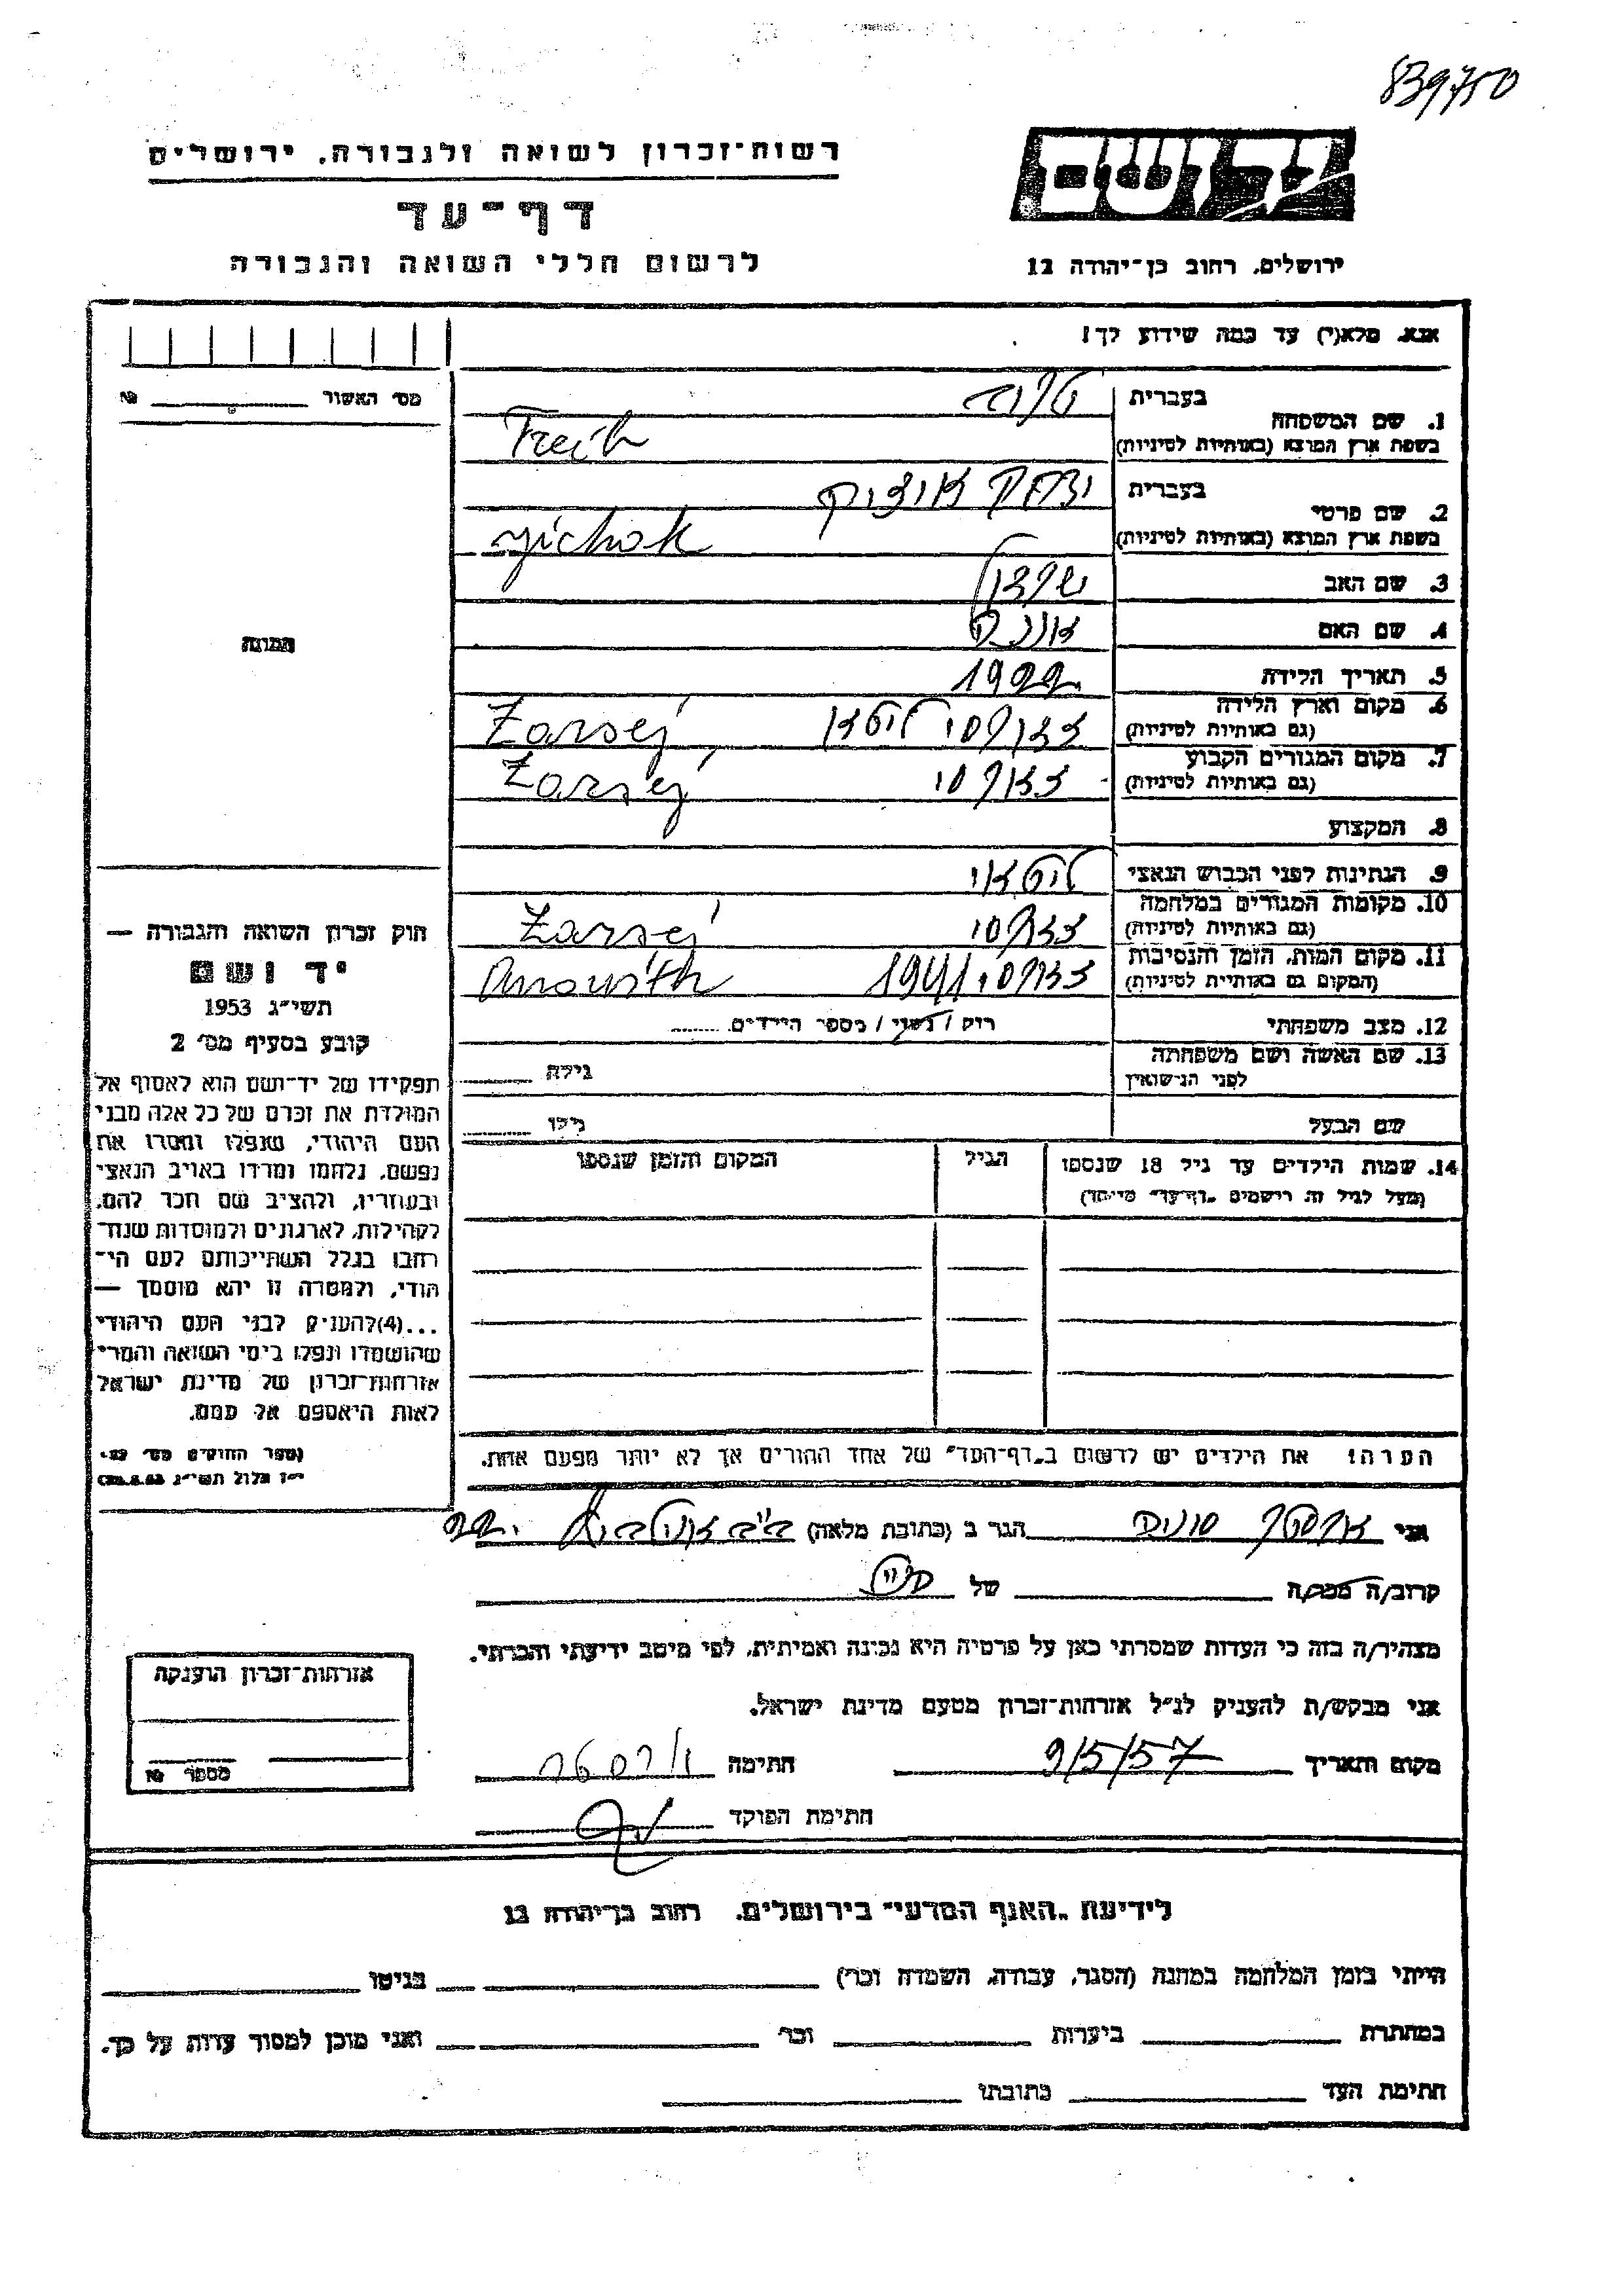 839750
רשות־זכרון לשואה ולגבורה, ירושלים
דף־עד
לרשום חללי השואה והגבורה
יד ושם
ירושלים, רחוב בן־יהודה 12
אנא, מלא(י) עד כמה שידוע לך!
מס׳ האשור № 
1. שם המשפחה
בעברית
בשפת ארץ המוצא (באותיות לטיניות)
2. שם פרטי
בעברית יצחק איציק
בשפת ארץ המוצא (באותיות לטיניות) yichok
3. שם האב
4. שם האם
5. תאריך הלידה 1922
6. מקום וארץ הלידה
(גם באותיות לטיניות) Zarsej ליטא
7. מקום המגורים הקבוע
(גם באותיות לטיניות) Zarsej
8. המקצוע
9. הנתינות לפני הכבוש הנאצי ליטאי
10. מקומות המגורים במלחמה
(גם באותיות לטיניות) Zarsej
11. מקום המות, הזמן והנסיבות
(המקום גם באותיות לטיניות) 1941
12. מצב משפחתי רווק / נשוי / מספר הילדים
13. שם האשה ושם משפחתה
לפני הנישואין גילה
שם הבעל גילו
14. שמות הילדים עד גיל 18 שנספו הגיל המקום והזמן שנספו
(מעל לגיל זה רושמים „דף־עד״ מיוחד)
הערה! את הילדים יש לרשום ב„דף־העד״ של אחד ההורים אך לא יותר מפעם אחת.
התמונה
חוק זכרון השואה והגבורה —
יד ושם
תשי״ג 1953
קובע בסעיף מס׳ 2
תפקידו של יד־ושם הוא לאסוף אל
המולדת את זכרם של כל אלה מבני
העם היהודי, שנפלו ומסרו את
נפשם, נלחמו ומרדו באויב הנאצי
ובעוזריו, ולהציב שם וזכר להם,
לקהילות, לארגונים ולמוסדות שנח־
רבו בגלל השתייכותם לעם הי־
הודי, ולמטרה זו יהא מוסמך —
...(4) להעניק לבני העם היהודי
שהושמדו ונפלו בימי השואה והמרי
אזרחות־זכרון של מדינת ישראל
לאות היאספם אל עמם.
אני הגר ב (כתובת מלאה)
קרוב/ה מכר/ה של
מצהיר/ה בזה כי העדות שמסרתי כאן על פרטיה היא נכונה ואמיתית, לפי מיטב ידיעתי והכרתי.
אני מבקש/ת להעניק לנ״ל אזרחות־זכרון מטעם מדינת ישראל.
מקום ותאריך 9/5/57 חתימה
חתימת הפוקד
אזרחות־זכרון הוענקה
מספר №
לידיעת „האגף המדעי״ בירושלים, רחוב בן־יהודה 12
הייתי בזמן המלחמה במחנה (הסגר, עבודה, השמדה וכו׳) בגיטו
במחתרת ביערות וכו׳ ואני מוכן למסור עדות על כך.
חתימת העד כתובתו